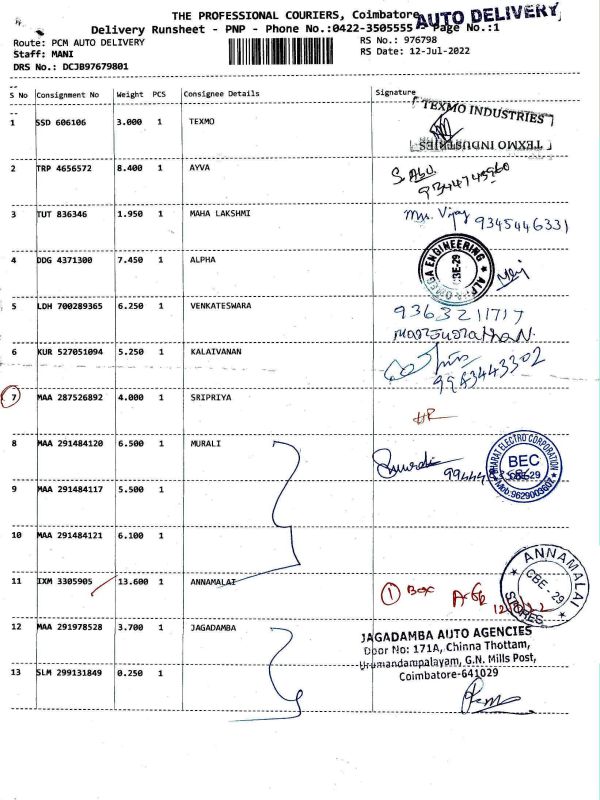 THE PROFESSIONAL COURIERS, Coimbatore
AUTO DELIVERY
Delivery Runsheet - PNP - Phone No.:0422-3505555 Page No.:1
Route: PCM AUTO DELIVERY
RS No.: 976798
Staff: MANI
RS Date: 12-Jul-2022
DRS No.: DCJB97679801
S No Consignment No Weight PCS Consignee Details Signature
1 SSD 606106 3.000 1 TEXMO
TEXMO INDUSTRIES
TEXMO INDUSTRIES
2 TRP 4656572 8.400 1 AYVA
9344745960
3 TUT 836346 1.950 1 MAHA LAKSHMI
Vijay 9345446331
4 DDG 4371300 7.450 1 ALPHA
ALPHA OMEGA ENGINEERING
CBE-29
5 LDH 700289365 6.250 1 VENKATESWARA
9363211717
6 KUR 527051094 5.250 1 KALAIVANAN
9943443302
7 MAA 287526892 4.000 1 SRIPRIYA
8 MAA 291484120 6.500 1 MURALI
Murali
BHARAT ELECTRO CORPORATION
BEC
CBE-29
Mob:9629003602
9 MAA 291484117 5.500 1
10 MAA 291484121 6.100 1
11 IXM 3305905 13.600 1 ANNAMALAI
1 Box
ANNAMALAI
CBE - 29
STORES
12 MAA 291978528 3.700 1 JAGADAMBA
JAGADAMBA AUTO AGENCIES
Door No: 171A, Chinna Thottam,
Urumandampalayam, G.N. Mills Post,
Coimbatore-641029
13 SLM 299131849 0.250 1